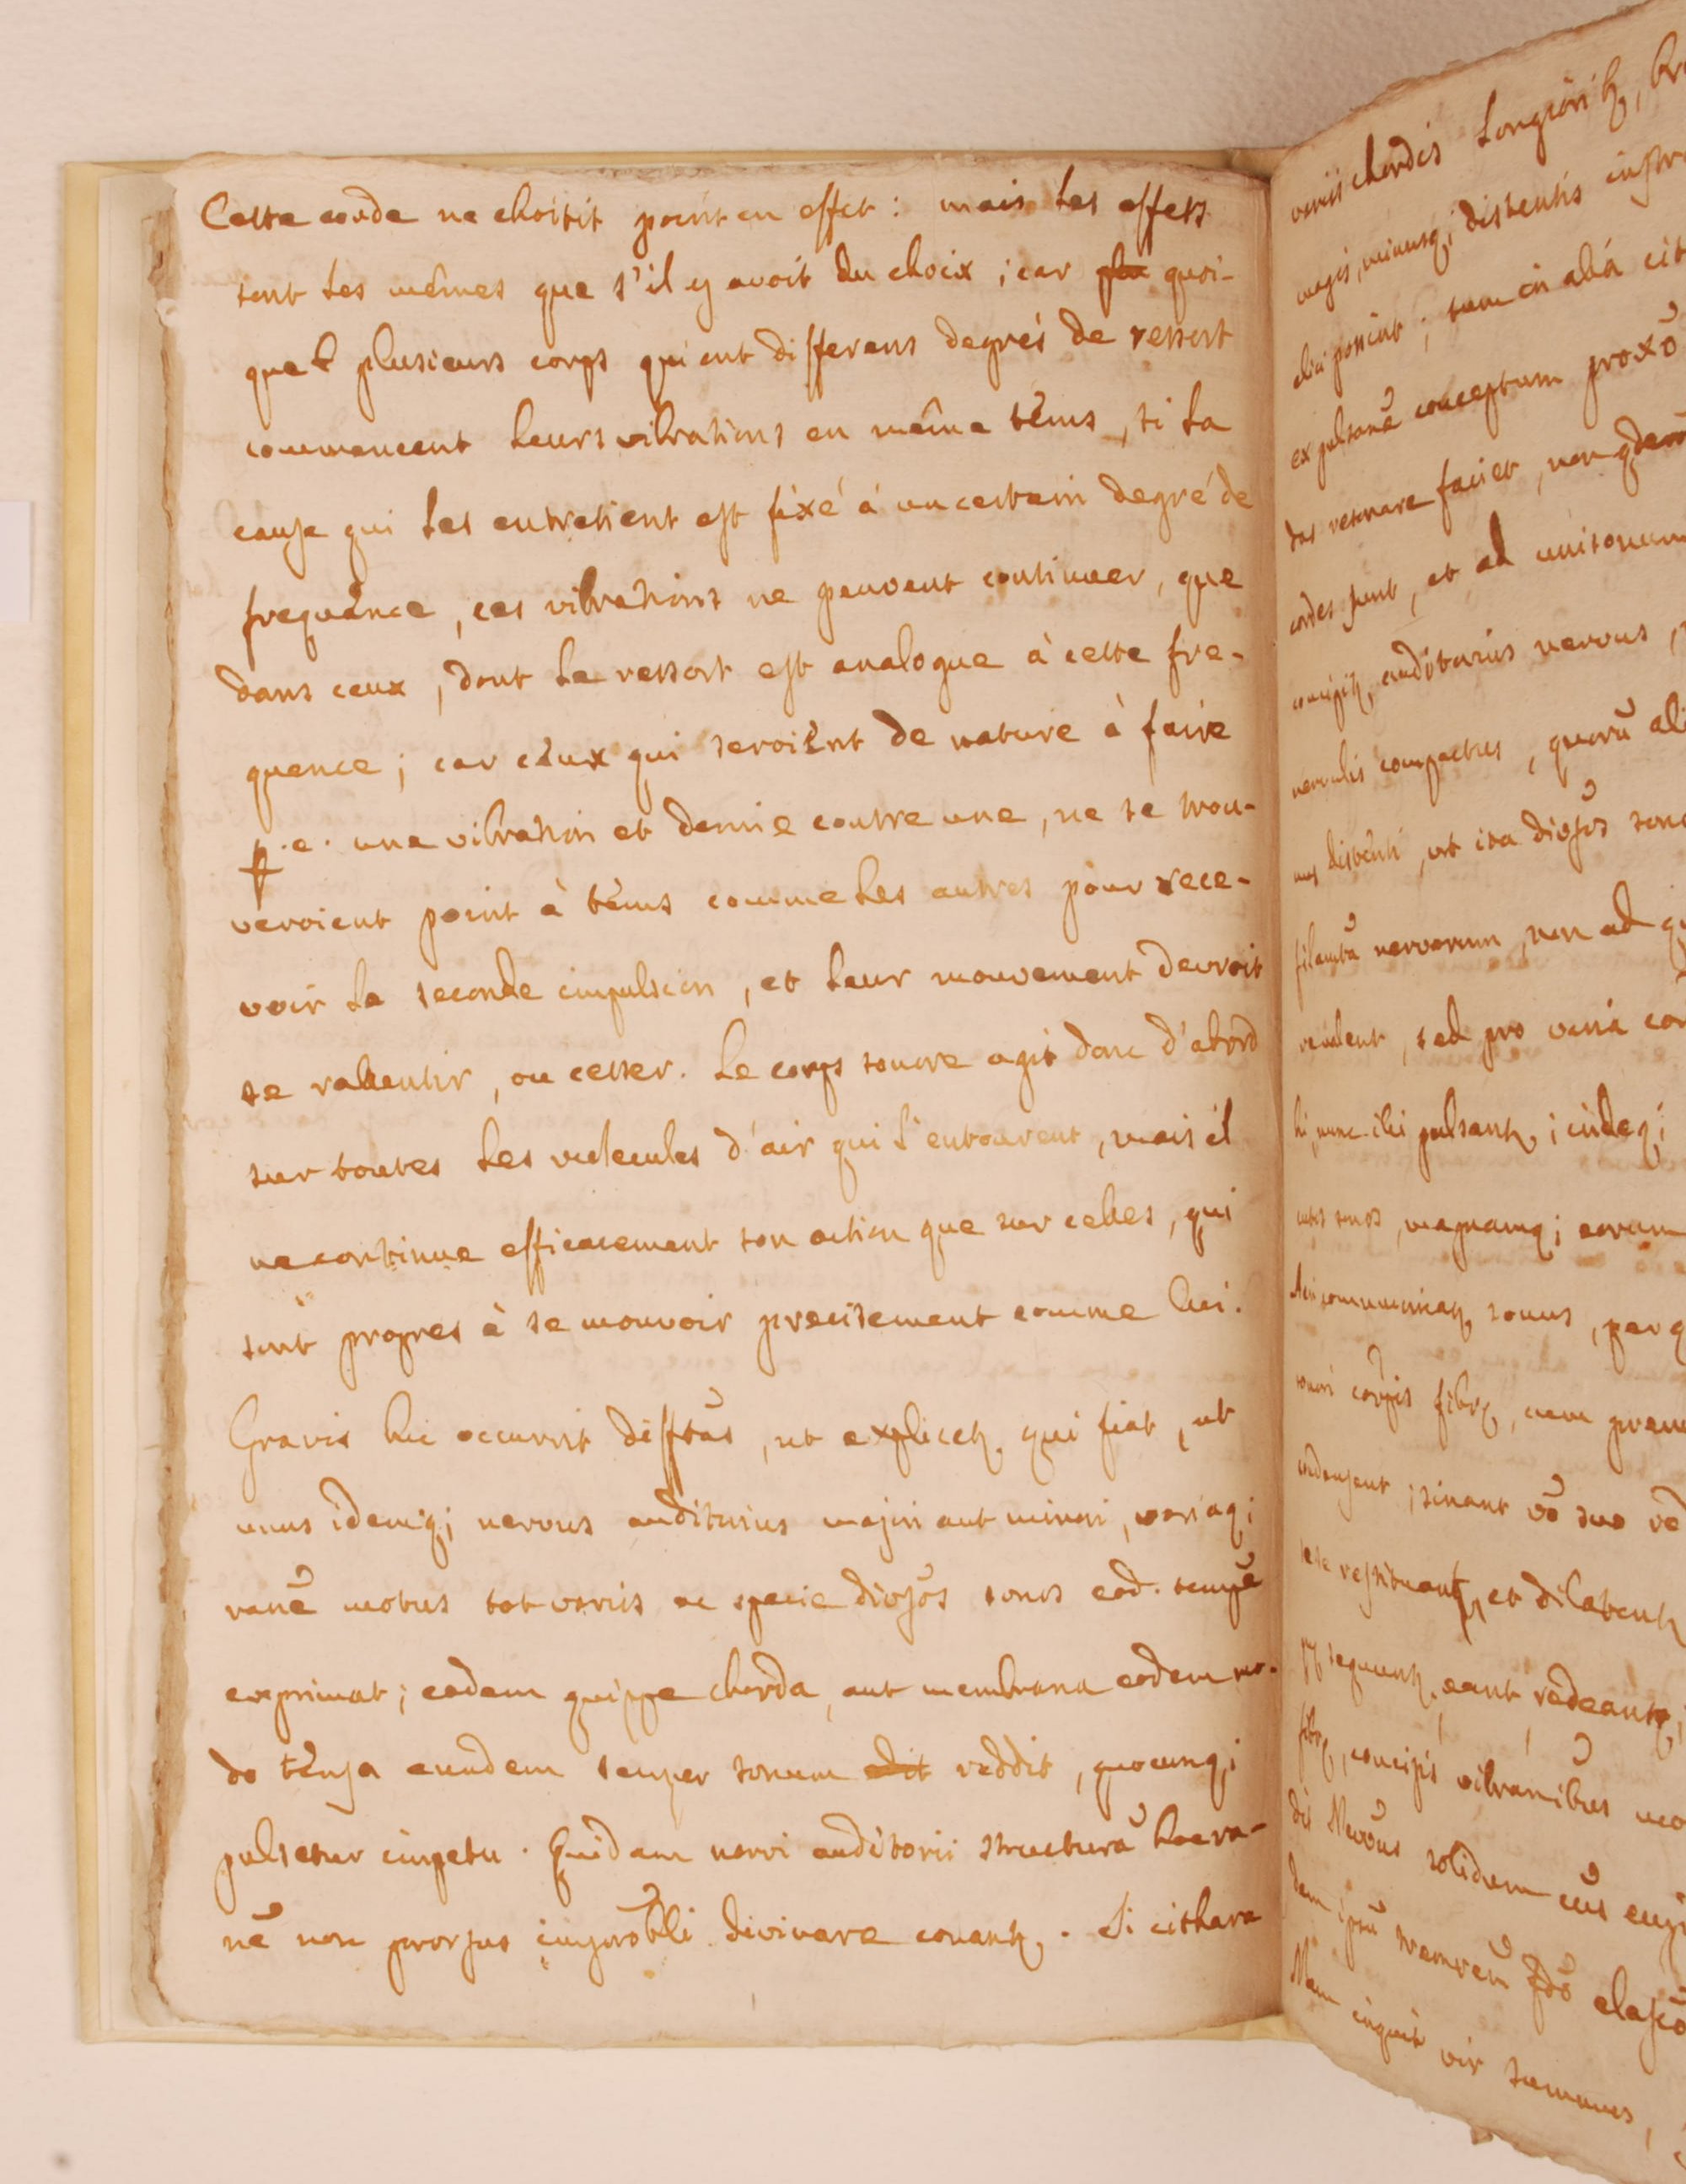 Cette corde ne choisit point en effet : mais les effets
sont les mêmes que s'il y avoit du choix ; car quoi-
que plusieurs corps qui ont differens degrés de ressort
commencent leurs vibrations en même téms, si la
cause qui les entretient est fixé à un certain degré de
frequence, ces vibrations ne peuvent continuer, que
dans ceux, dont le ressort est analogue à cette fre-
quence ; car ceux qui seroient de nature à faire
p. e. une vibration et demie contre une, ne se trou-
veroient point à téms comme les autres pour rece-
voir la seconde impulsion, et leur mouvement devroit
se rallentir, ou cesser. Le corps sonore agit donc d'abord
sur toutes les molecules d'air qui l'entourent, mais il
ne continue efficacement son action que sur celles, qui
sont propres à se mouvoir precisement comme lui.
Gravis hic occurrit difftas, ut explicetr qui fiat, ut
unus idemq; nervus auditorius majori aut minori, variaq;
raõne motus tot variis ac specie divsos sonos eod. tempe
exprimat ; eadem quippe chorda, aut membrana eodem mo-
do tensa eundem semper sonum edit reddit, quocunq;
pulsetur impetu. Quidam nervi auditorii structurâ hac ra-
nẽ non prorsus improbli divinare conantr. Si cithara
variis chordis longiorib,
magis, minusq; distentis
elici possint ; tum in aliâ
ex pulsanẽ conceptum proxõ
das resonare faciet, non
cordes sunt, et ad unisonum
concipitr auditorius nervus,
nervulis compactus, quorũ
distenti, ut ita divsos
nervorum, non ad
sed pro variâ
hi, nunc illi pulsantr ; indeq;
magnamq; eorum
communicatr sonus, per
corpis fibrę, cum
sinant võ suo
sese restituantr, et dilatentr
sequuntr, eant redeantr ;
fibrę, concipis vibranibus
solidum
elasco
Nam inquit vir summus,